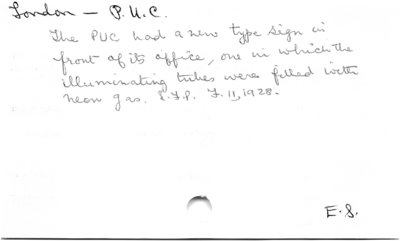 London — P.U.C.
The PUC had a new type sign in
front of its office, one in which the
illuminating tubes were filled with
neon gas. L.F.P. F. 11, 1928.
E.S.